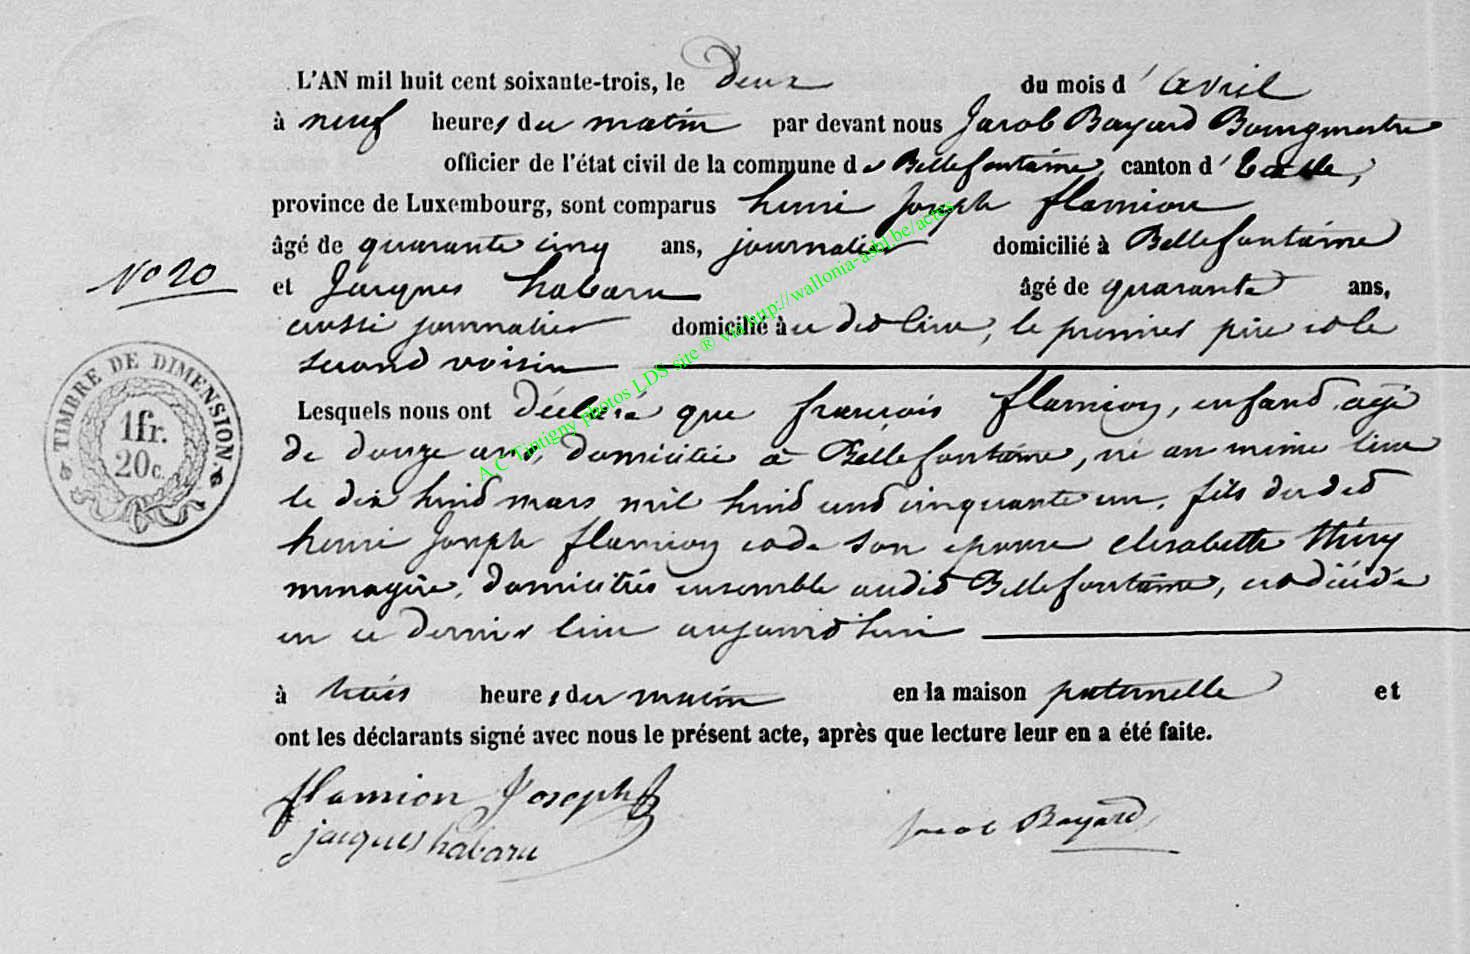 L'AN mil huit cent soixante-trois, le Deux du mois d'Avril
à neuf heures du matin par devant nous Jacob Bayard Bourgmestre
officier de l'état civil de la commune de Bellefontaine, canton d'Etalle,
province de Luxembourg, sont comparus henri Joseph flamion
âgé de quarante cinq ans, journalier domicilié à Bellefontaine
No 20
et Jacques habaru âgé de quarante ans,
aussi journalier domicilié à ce dit lieu, le premier père et le
second voisin
Lesquels nous ont Déclaré que françois flamion, enfand agé
de douze ans, domicilié à Bellefontaine, né au même lieu
le dix huid mars mil huid cend cinquante un, fils dudit
henri Joseph flamion et de son epouse elisabette thiry
menagère, domiciliés ensemble audit Bellefontaine, est décédé
en ce dernier lieu aujourd'hui
à trois heures du matin en la maison paternelle et
ont les déclarants signé avec nous le présent acte, après que lecture leur en a été faite.
flamion Joseph
jacques habaru
Jacob Bayard
TIMBRE DE DIMENSION
1fr.
20c.
A.C Tintigny photos LDS site ® via http://wallonia-asbl.be/actes